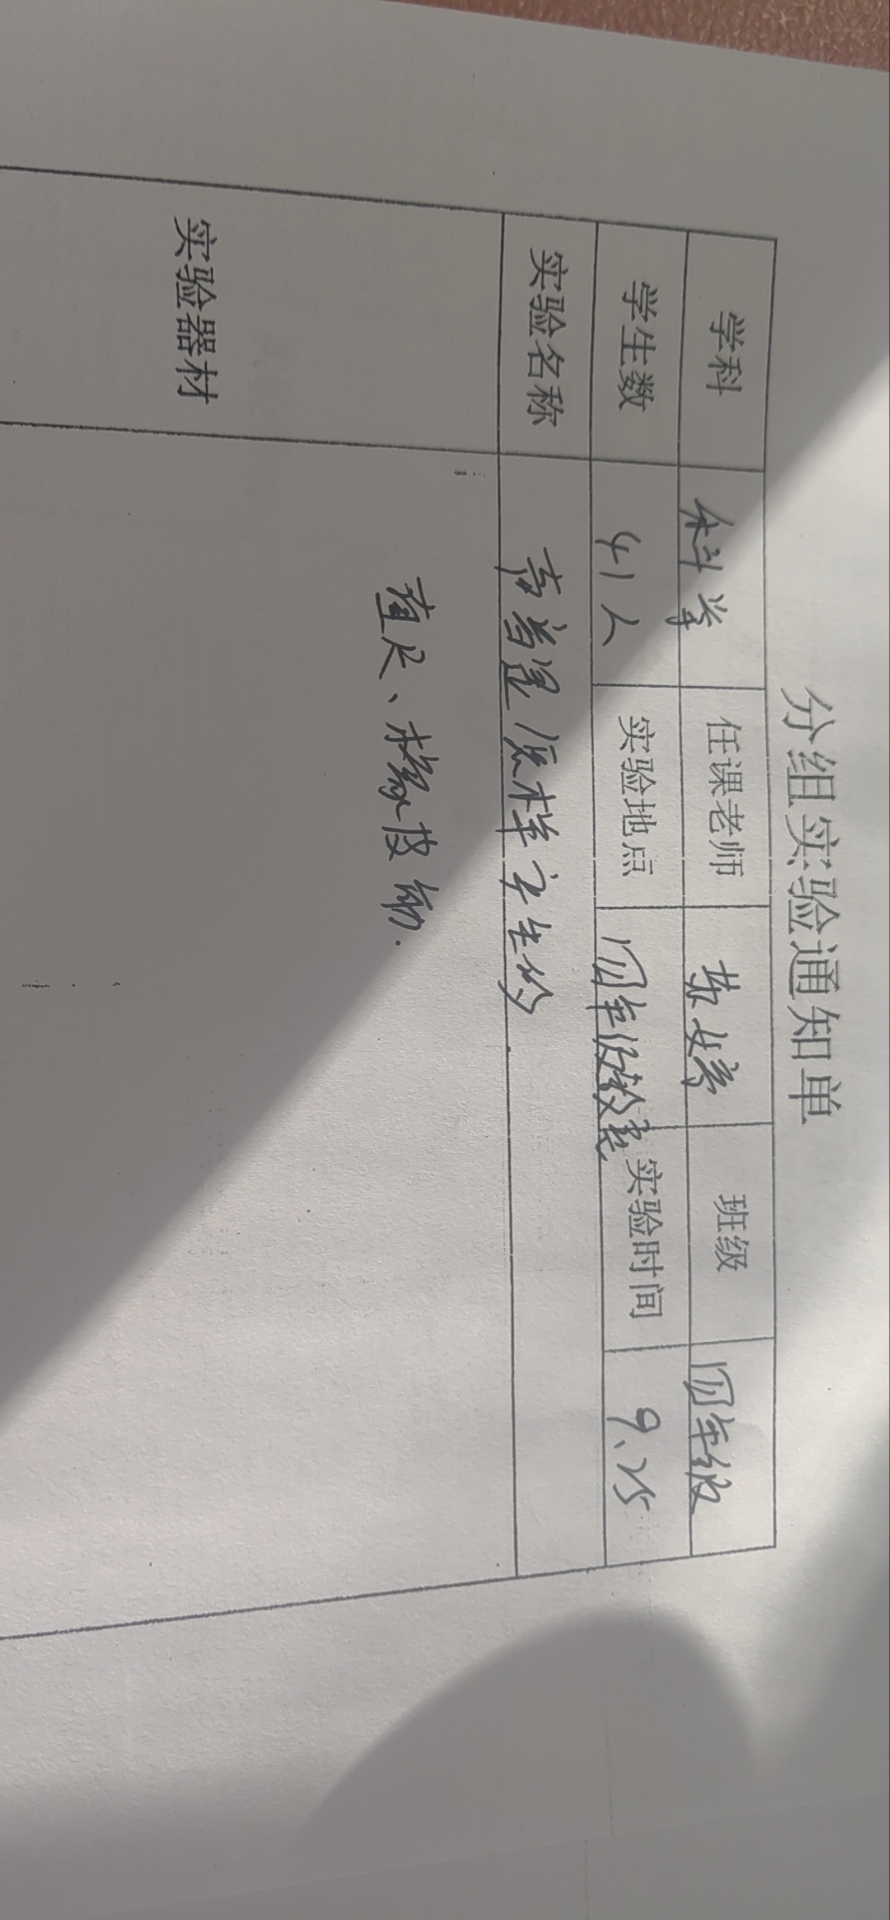 分组实验通知单
学科 科学 任课老师 婷 班级 四年级
学生数 41人 实验地点 四年级教室 实验时间 9.25
实验名称 声音是怎样产生的
实验器材 直尺、橡皮筋.